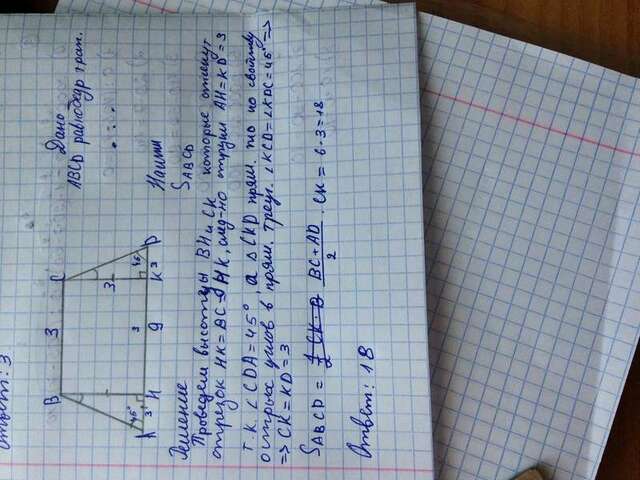 Ответ: 3
Дано
ABCD равнобедр трап.
Найти
S_ABCD
B 3 C
3
45° 45°
A 3 H 3 K 3 D
9
Решение
Проведем высоты BH и CK которые отсекут
отрезок HK = BC = HK, след-но отрезки AH = KD = 3
т.к. ∠CDA = 45°, а △CKD прям. то по свойству
острых углов в прям. треуг. ∠KCD = ∠KDC = 45° =>
=> CK = KD = 3
S_ABCD = (BC + AD)/2 · CK = 6 · 3 = 18
Ответ: 18